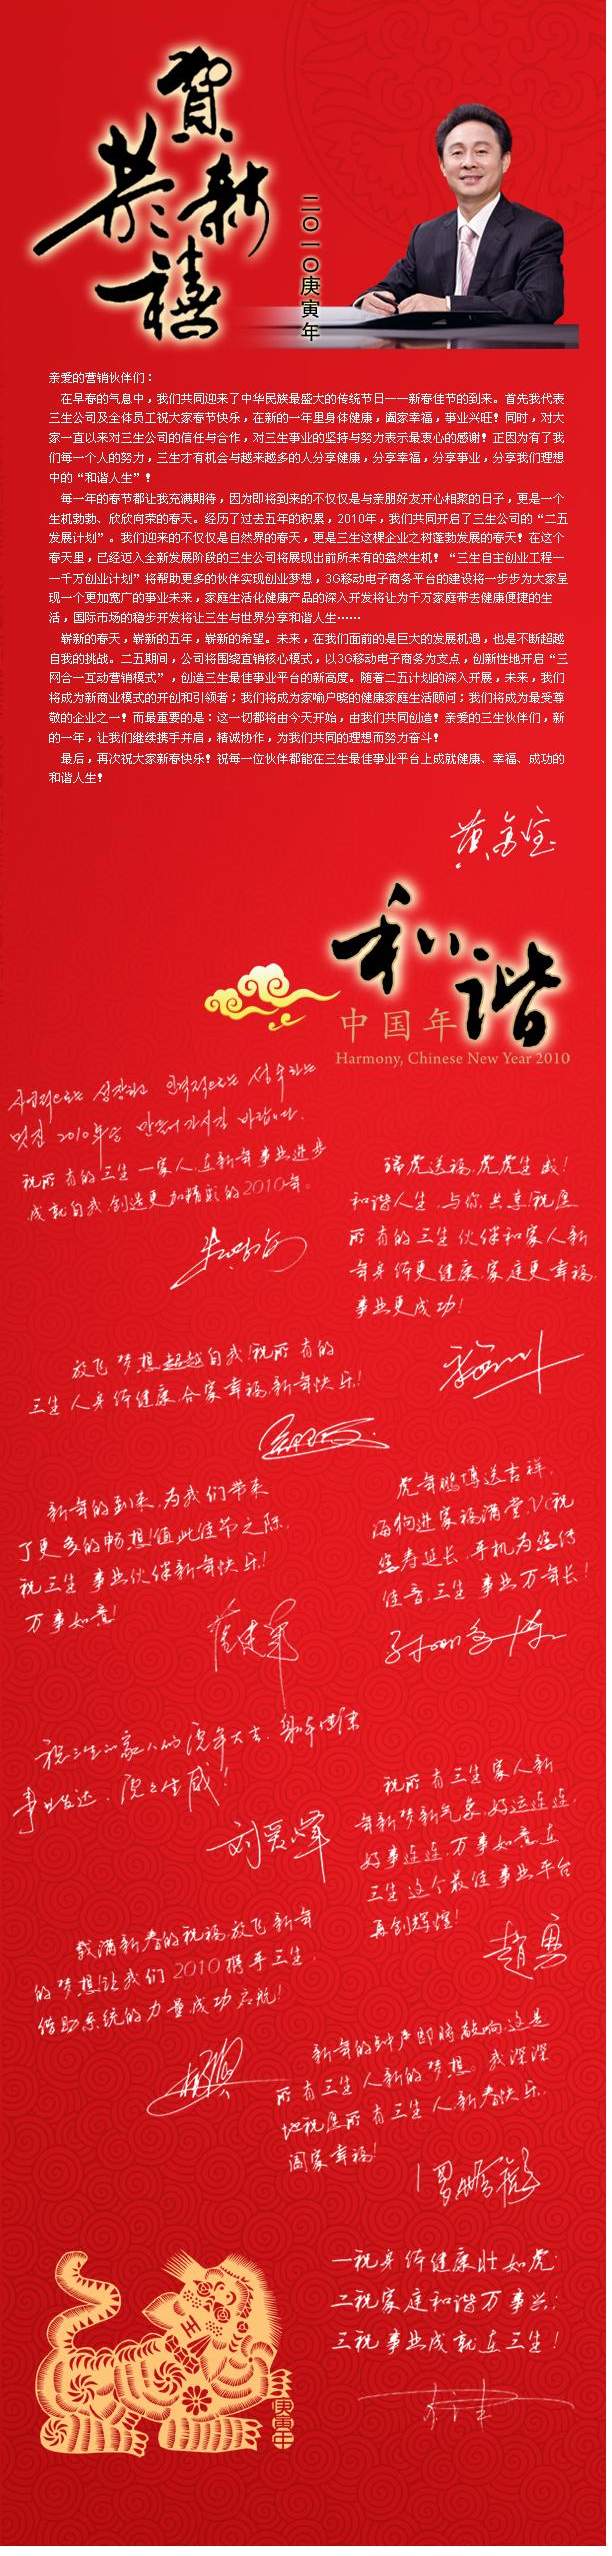 恭贺新禧
二〇一〇庚寅年
亲爱的营销伙伴们：
在早春的气息中，我们共同迎来了中华民族最盛大的传统节日——新春佳节的到来。首先我代表
三生公司及全体员工祝大家春节快乐，在新的一年里身体健康，阖家幸福，事业兴旺！同时，对大
家一直以来对三生公司的信任与合作，对三生事业的坚持与努力表示最衷心的感谢！正因为有了我
们每一个人的努力，三生才有机会与越来越多的人分享健康，分享幸福，分享事业，分享我们理想
中的“和谐人生”！
每一年的春节都让我充满期待，因为即将到来的不仅仅是与亲朋好友开心相聚的日子，更是一个
生机勃勃、欣欣向荣的春天。经历了过去五年的积累，2010年，我们共同开启了三生公司的“二五
发展计划”。我们迎来的不仅仅是自然界的春天，更是三生这棵企业之树蓬勃发展的春天！在这个
春天里，已经迈入全新发展阶段的三生公司将展现出前所未有的盎然生机！“三生自主创业工程—
—千万创业计划”将帮助更多的伙伴实现创业梦想，3G移动电子商务平台的建设将一步步为大家呈
现一个更加宽广的事业未来，家庭生活化健康产品的深入开发将让为千万家庭带去健康便捷的生
活，国际市场的稳步开发将让三生与世界分享和谐人生……
崭新的春天，崭新的五年，崭新的希望。未来，在我们面前的是巨大的发展机遇，也是不断超越
自我的挑战。二五期间，公司将围绕直销核心模式，以3G移动电子商务为支点，创新性地开启“三
网合一互动营销模式”，创造三生最佳事业平台的新高度。随着二五计划的深入开展，未来，我们
将成为新商业模式的开创和引领者；我们将成为家喻户晓的健康家庭生活顾问；我们将成为最受尊
敬的企业之一！而最重要的是：这一切都将由今天开始，由我们共同创造！亲爱的三生伙伴们，新
的一年，让我们继续携手并肩，精诚协作，为我们共同的理想而努力奋斗！
最后，再次祝大家新春快乐！祝每一位伙伴都能在三生最佳事业平台上成就健康、幸福、成功的
和谐人生！
黄金宝
和谐
中国年
Harmony, Chinese New Year 2010
祝所有的三生一家人，在新年事业进步
成就自我，创造更加精彩的2010年。
瑞虎送福，虎虎生威！
和谐人生，与你共享！祝愿
所有的三生伙伴和家人新
年身体更健康，家庭更幸福，
事业更成功！
放飞梦想，超越自我！祝所有的
三生人身体健康，合家幸福，新年快乐！
新年的到来，为我们带来
了更多的畅想！值此佳节之际，
祝三生事业伙伴新年快乐！
万事如意！
虎年鹏博送吉祥，
海狗进家福满堂，VC祝
您寿延长，手机为您传
佳音，三生事业万年长！
祝三生的家人们虎年大吉，身体健康
事业发达，虎虎生威！
刘爱峰
祝所有三生家人新
年新梦新气象，好运连连，
好事连连，万事如意，在
三生这个最佳事业平台
再创辉煌！
赵勇
载满新春的祝福，放飞新年
的梦想！让我们2010携手三生，
借助系统的力量，成功启航！
新年的钟声即将敲响，这是
所有三生人新的梦想。我深深
地祝愿所有三生人，新春快乐，
阖家幸福！
一祝身体健康壮如虎；
二祝家庭和谐万事兴；
三祝事业成就在三生！
庚寅年